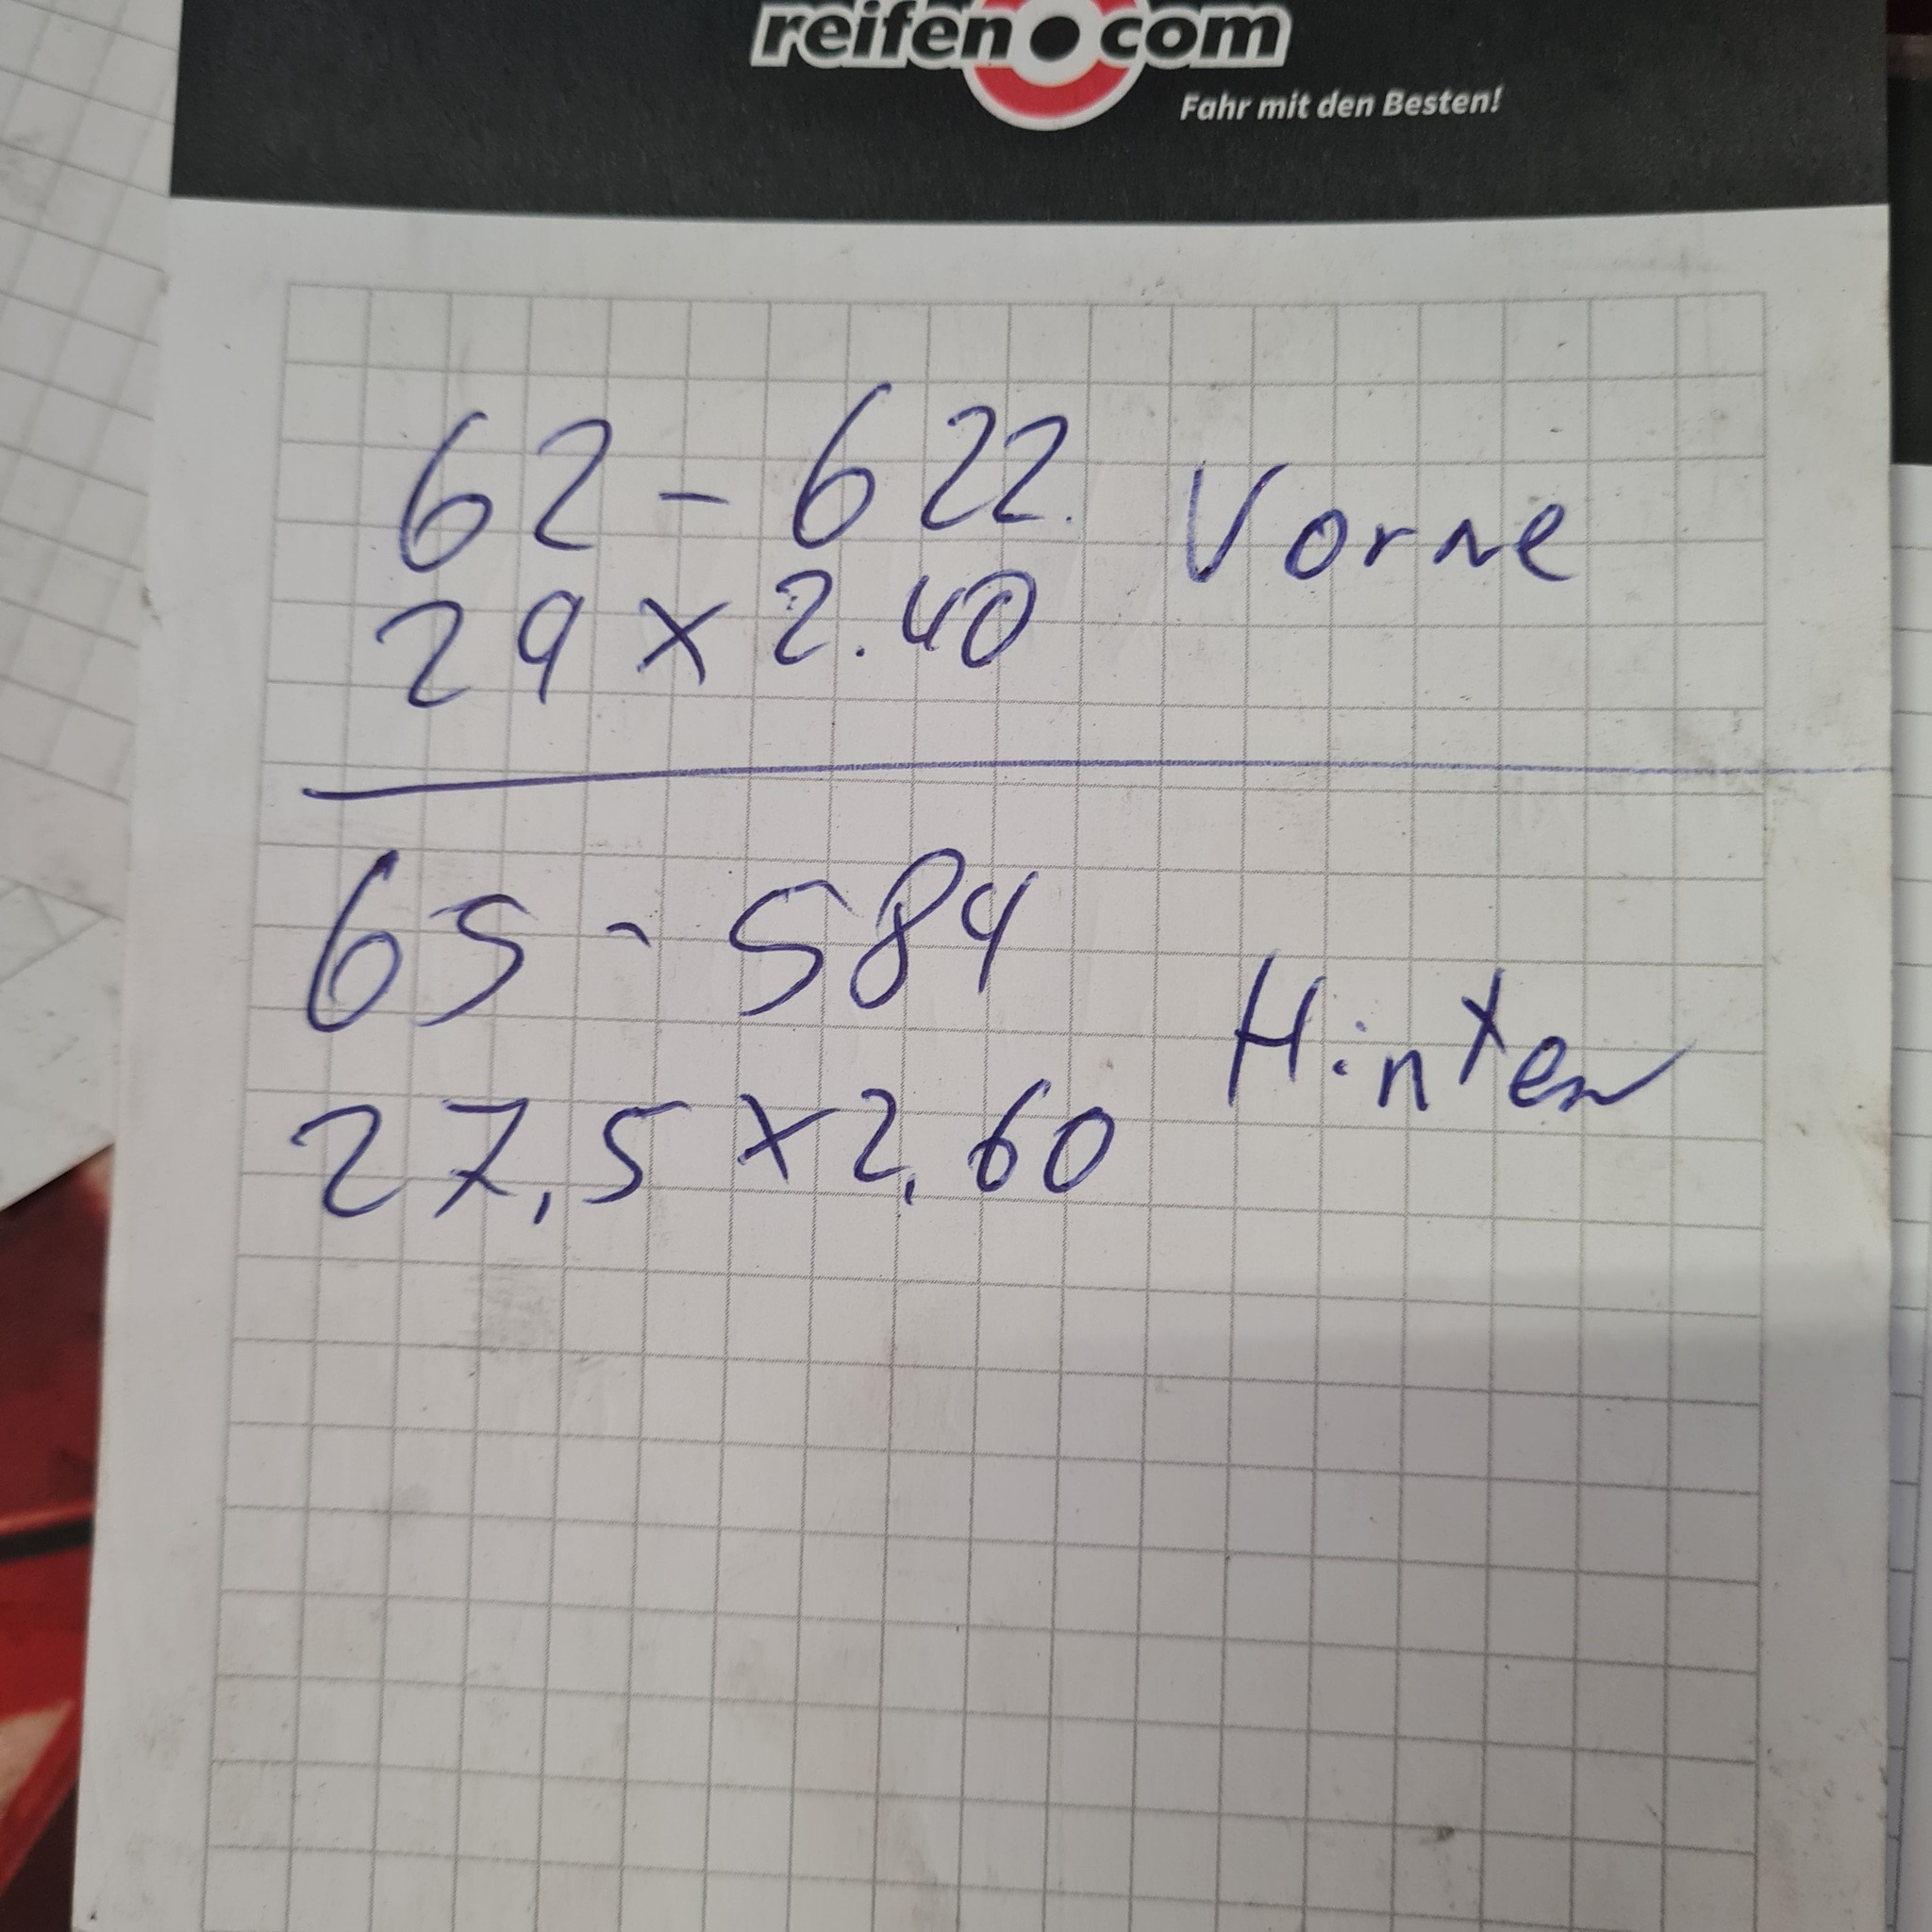 reifen.com
Fahr mit den Besten!
62 - 622. Vorne
29 x 2.40
65 - 584
Hinten
27,5 x 2,60